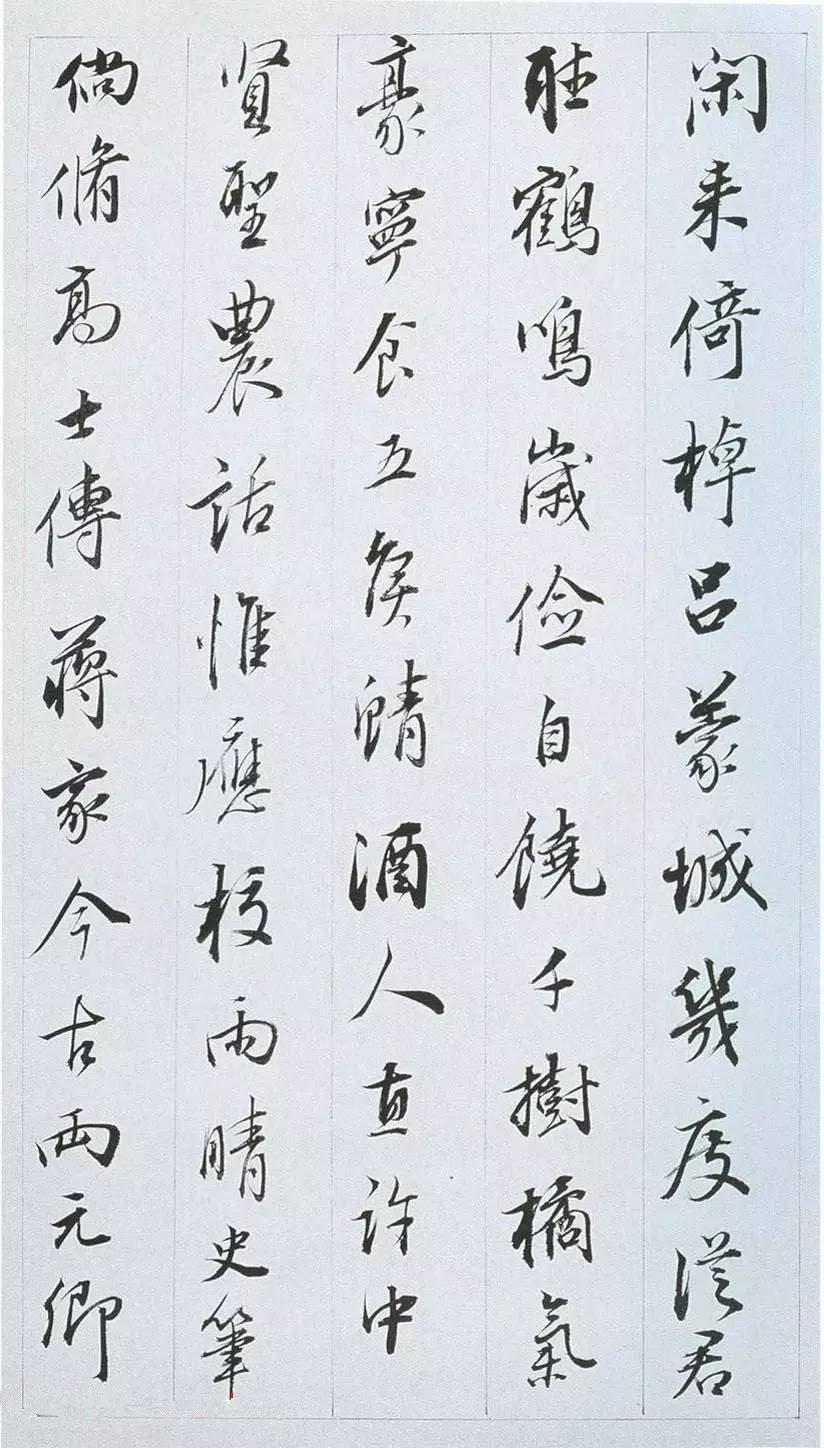 閑来倚棹呂蒙城幾度從君
聽鶴鳴歲儉自饒千樹橘氣
豪寧食五侯鯖酒人直許中
賢聖農話惟應校雨晴史筆
倘脩高士傳蔣家今古兩元卿